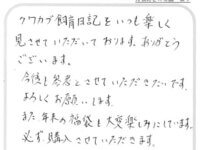 クワカブ飼育日記をいつも楽しく
見させていただいております。ありがとう
ございます。
今後も参考とさせていただきたいです。
よろしくお願いします。
また年末の福袋を大変楽しみにしています。
必ず購入させていただきます。